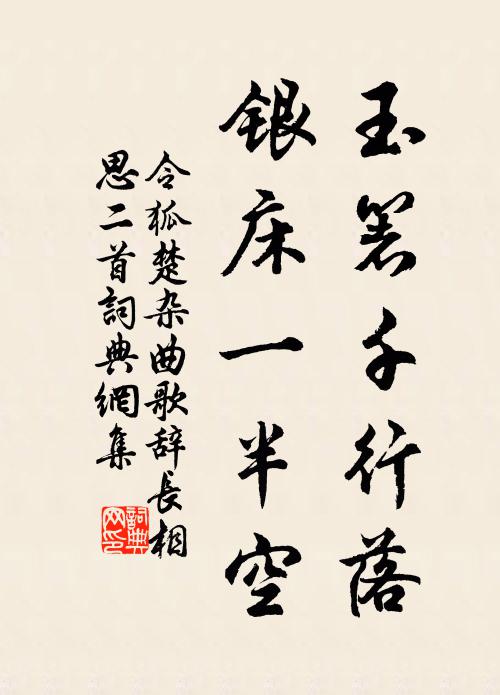 玉箸千行落
銀床一半空
令狐楚杂曲歌辞長相
思二首詞典網集
詞典
网印